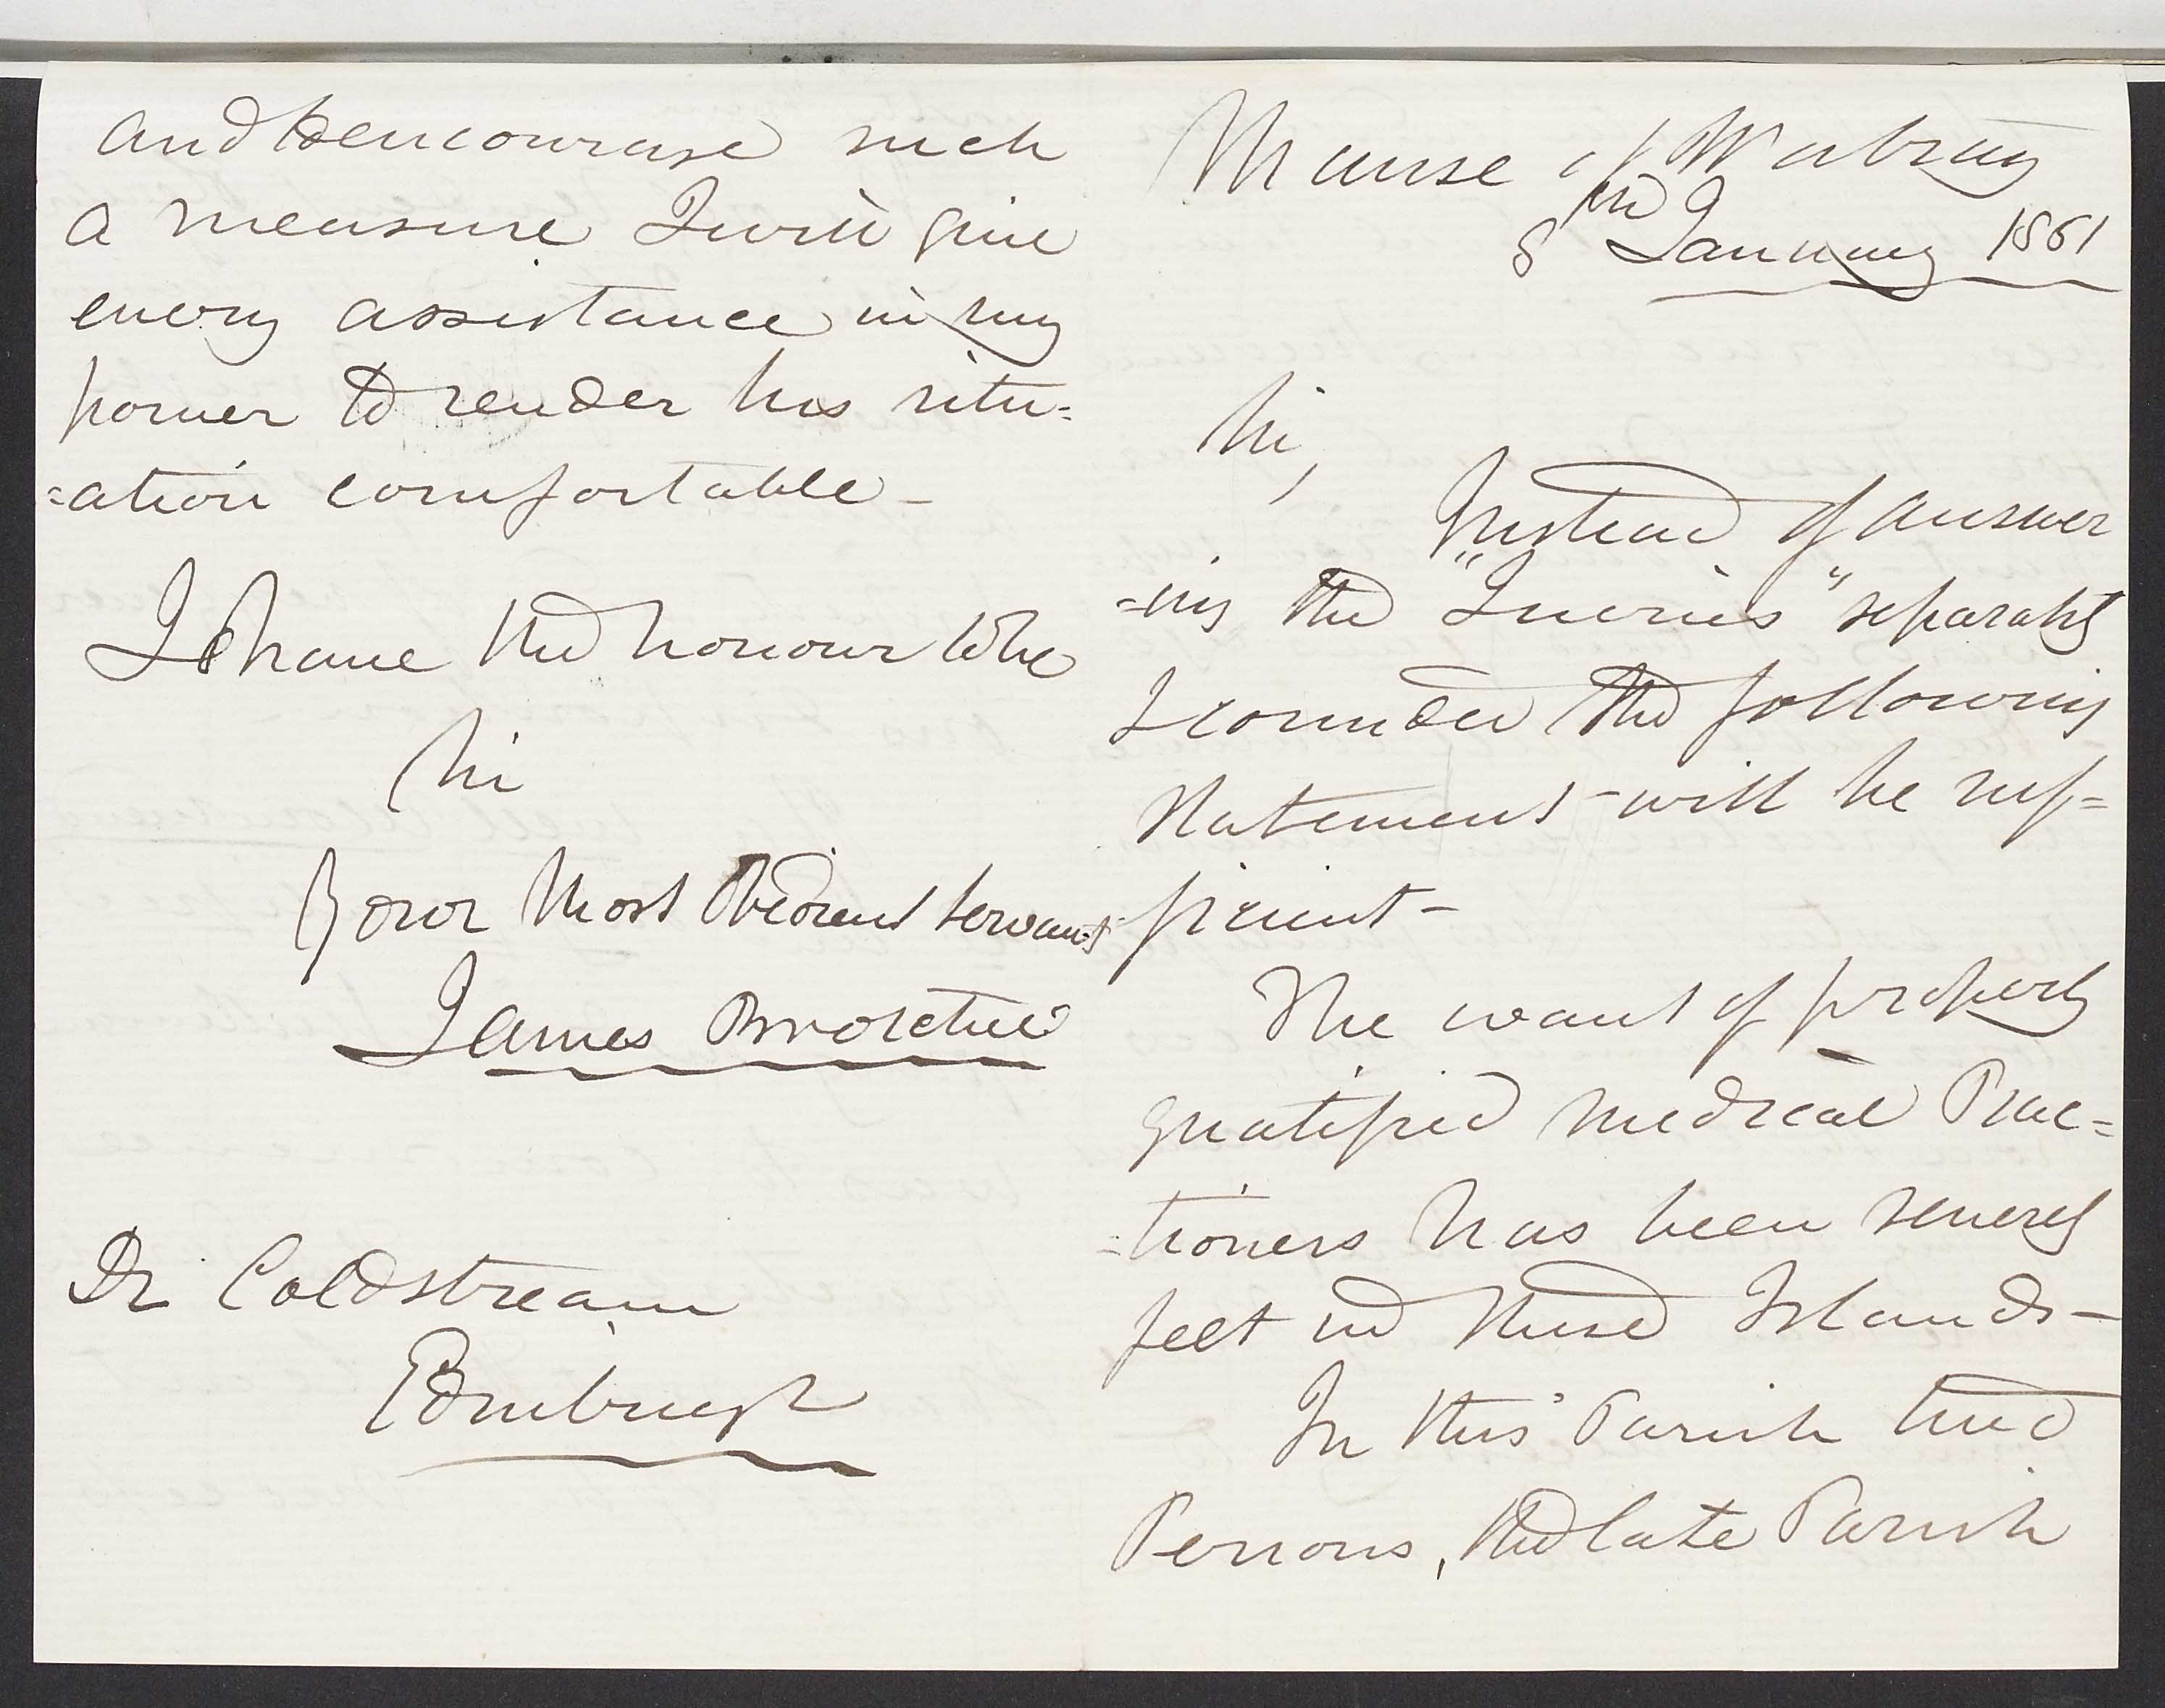 and to encourage such
a measure I will give
every assistance in my
power to render his situ=
=ation comfortable -
I have the honour to be
Sir
Your Most Obedient Servant
James Brotchie
Dr Coldstream
Edinburgh
Manse of Westray
8th January 1861
Sir,
Instead of answer
=ing the "Queries" separately
I consider the following
Statement will be suf=
ficient -
The want of properly
qualified medical Prac=
=tioners has been severely
felt in these Islands -
In this Parish two
Persons, the late Parish